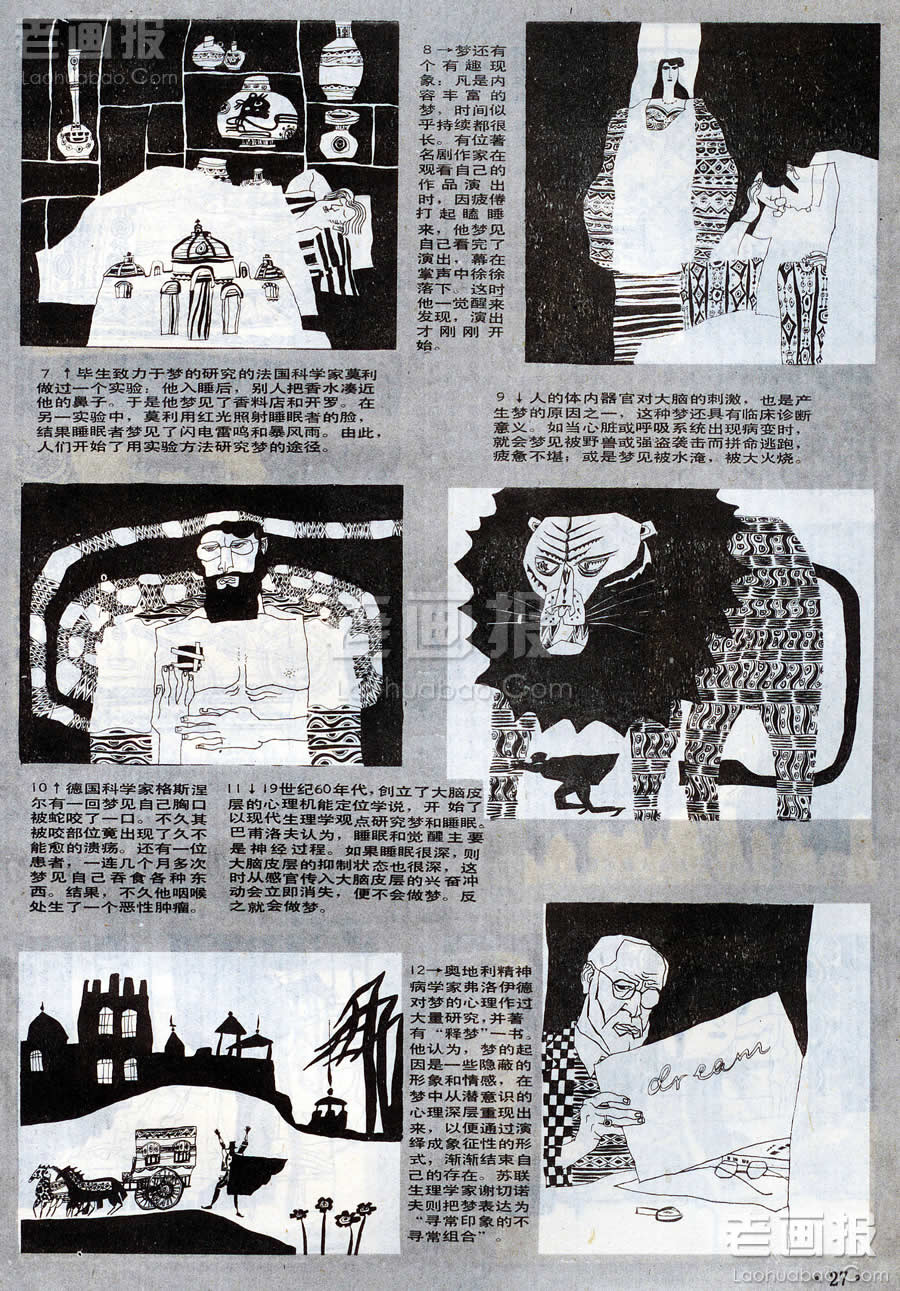 老画报
Laohuabao.Com
8→梦还有
个有趣现
象：凡是内
容丰富的
梦，时间似
乎持续都很
长。有位著
名剧作家在
观看自己的
作品演出
时，因疲倦
打起瞌睡
来，他梦见
自己看完了
演出，幕在
掌声中徐徐
落下。这时
他一觉醒来
发现，演出
才刚刚开
始。
7 ↑毕生致力于梦的研究的法国科学家莫利
做过一个实验：他入睡后，别人把香水凑近
他的鼻子。于是他梦见了香料店和开罗。在
另一实验中，莫利用红光照射睡眠者的脸，
结果睡眠者梦见了闪电雷鸣和暴风雨。由此，
人们开始了用实验方法研究梦的途径。
9↓人的体内器官对大脑的刺激，也是产
生梦的原因之一，这种梦还具有临床诊断
意义。如当心脏或呼吸系统出现病变时，
就会梦见被野兽或强盗袭击而拼命逃跑，
疲惫不堪；或是梦见被水淹，被大火烧。
老画报
Laohuabao.Com
10↑德国科学家格斯涅
尔有一回梦见自己胸口
被蛇咬了一口。不久其
被咬部位竟出现了久不
能愈的溃疡。还有一位
患者，一连几个月多次
梦见自己吞食各种东
西。结果，不久他咽喉
处生了一个恶性肿瘤。
11↓19世纪60年代，创立了大脑皮
层的心理机能定位学说，开始了
以现代生理学观点研究梦和睡眠。
巴甫洛夫认为，睡眠和觉醒主要
是神经过程。如果睡眠很深，则
大脑皮层的抑制状态也很深，这
时从感官传入大脑皮层的兴奋冲
动会立即消失，便不会做梦。反
之就会做梦。
12→奥地利精神
病学家弗洛伊德
对梦的心理作过
大量研究，并著
有“释梦”一书。
他认为，梦的起
因是一些隐蔽的
形象和情感，在
梦中从潜意识的
心理深层重现出
来，以便通过演
绎成象征性的形
式，渐渐结束自
己的存在。苏联
生理学家谢切诺
夫则把梦表达为
“寻常印象的不
寻常组合”。
dream
老画报
Laohuabao.Com
·27·